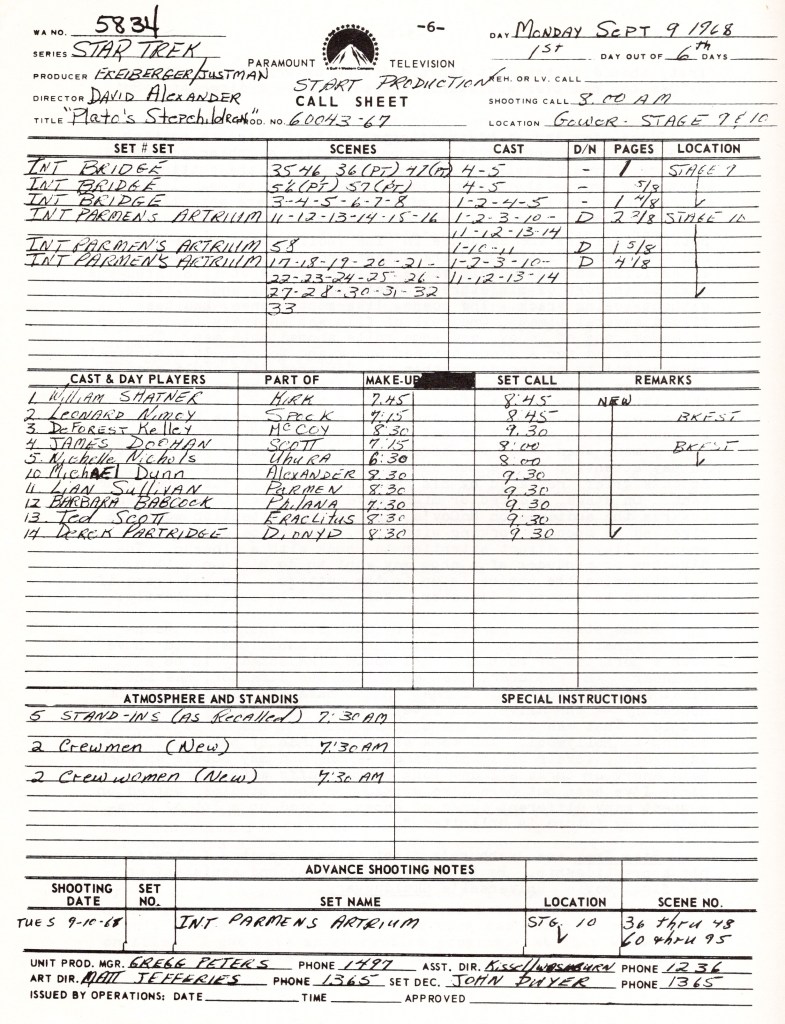 -6-
WA NO. 5834
DAY MONDAY SEPT 9 1968
SERIES STAR TREK
1ST DAY OUT OF 6th DAYS
PARAMOUNT TELEVISION
PRODUCER FREIBERGER/JUSTMAN
START PRODUCTION
REH. OR LV. CALL
DIRECTOR DAVID AlexANDER
CALL SHEET
SHOOTING CALL 8.00 AM
TITLE "Plato's Stepchildren" PROD. NO. 60043-67
LOCATION GOWER - STAGE 9 & 10
SET # SET SCENES CAST D/N PAGES LOCATION
INT BRIDGE 35 46, 36 (PT) 47 (PT) 4-5 - 1 STAGE 9
INT BRIDGE 56 (PT) 57 (PT) 4-5 - 5/8
INT BRIDGE 3-4-5-6-7-8 1-2-4-5 - 1 4/8
INT PARMENS ARTRIUM 11-12-13-14-15-16 1-2-3-10- D 2 3/8 STAGE 10
11-12-13-14
INT PARMEN'S ARTRIUM 58 1-10-11 D 1 5/8
INT PARMEN'S ARTRIUM 17-18-19-20-21- 1-2-3-10- D 4 1/8
22-23-24-25-26- 11-12-13-14
27-28-30-31-32
33
CAST & DAY PLAYERS PART OF MAKE-UP SET CALL REMARKS
1 William SHATNER KIRK 7.45 8:45 NEW
2 Leonard Nimoy SPOCK 7:15 8 45 BKFST
3 DeFOREST Kelley McCOY 8:30 9.30
4 JAMES DOOHAN SCOTT 7:15 8:00 BKFST
5. Nichelle Nichols UhURA 6:30 8.00
10 MichAEL Dunn AlexANDER 8.30 9.30
11 LIAN SullIVAN PARMEN 8.30 9.30
12 BARBARA BABCOCK PhilANA 7:30 9.30
13. Ted SCOTT ERACLITUS 8:30 9:30
14 DEREK PARTRIDGE DIONYD 8:30 9.30
ATMOSPHERE AND STANDINS SPECIAL INSTRUCTIONS
5 STAND-INS (AS Recalled) 7:30 AM
2 Crewmen (New) 7:30 AM
2 Crewwomen (New) 7:30 AM
ADVANCE SHOOTING NOTES
SHOOTING DATE SET NO. SET NAME LOCATION SCENE NO.
TUES 9-10-68 INT PARMENS ARTRIUM STG. 10 36 thru 48
60 thru 95
UNIT PROD. MGR. GREGG PETERS PHONE 1497 ASST. DIR. Kissel/WASHBURN PHONE 1236
ART DIR. MATT JEFFERIES PHONE 1365 SET DEC. JOHN DWYER PHONE 1365
ISSUED BY OPERATIONS: DATE TIME APPROVED